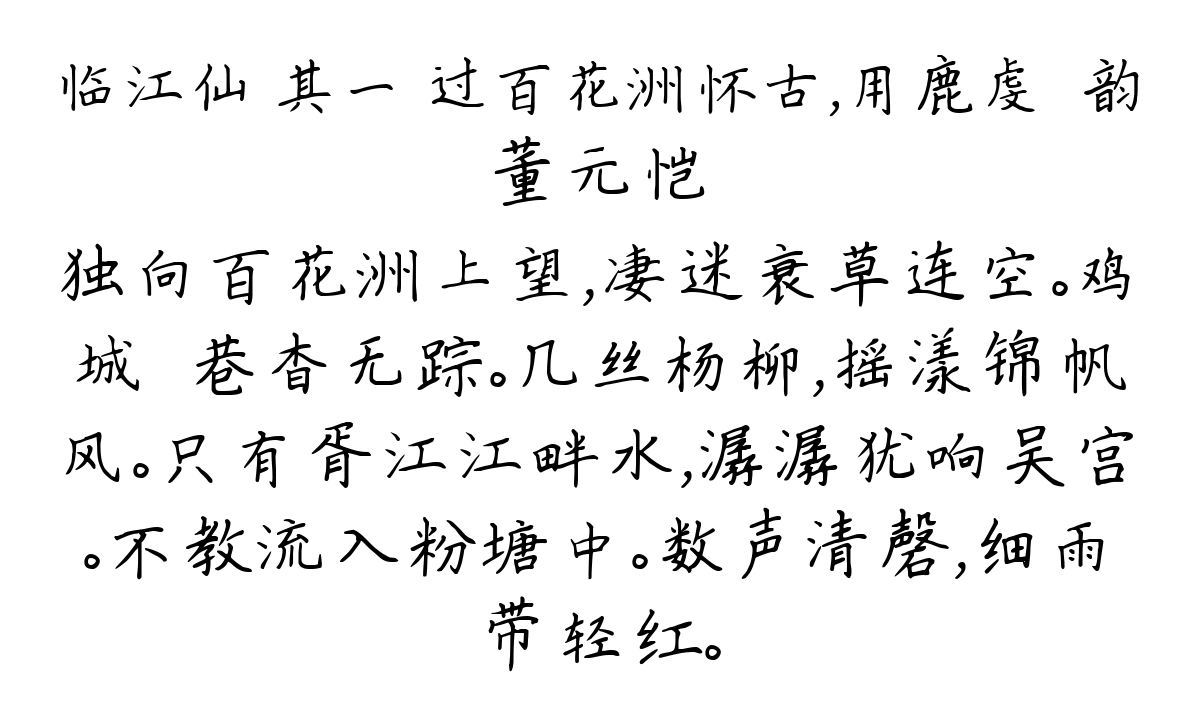 临江仙 其一 过百花洲怀古,用鹿虔 韵
董元恺
独向百花洲上望,凄迷衰草连空。鸡
城 巷杳无踪。几丝杨柳,摇漾锦帆
风。只有胥江江畔水,潺潺犹响吴宫
。不教流入粉塘中。数声清磬,细雨
带轻红。